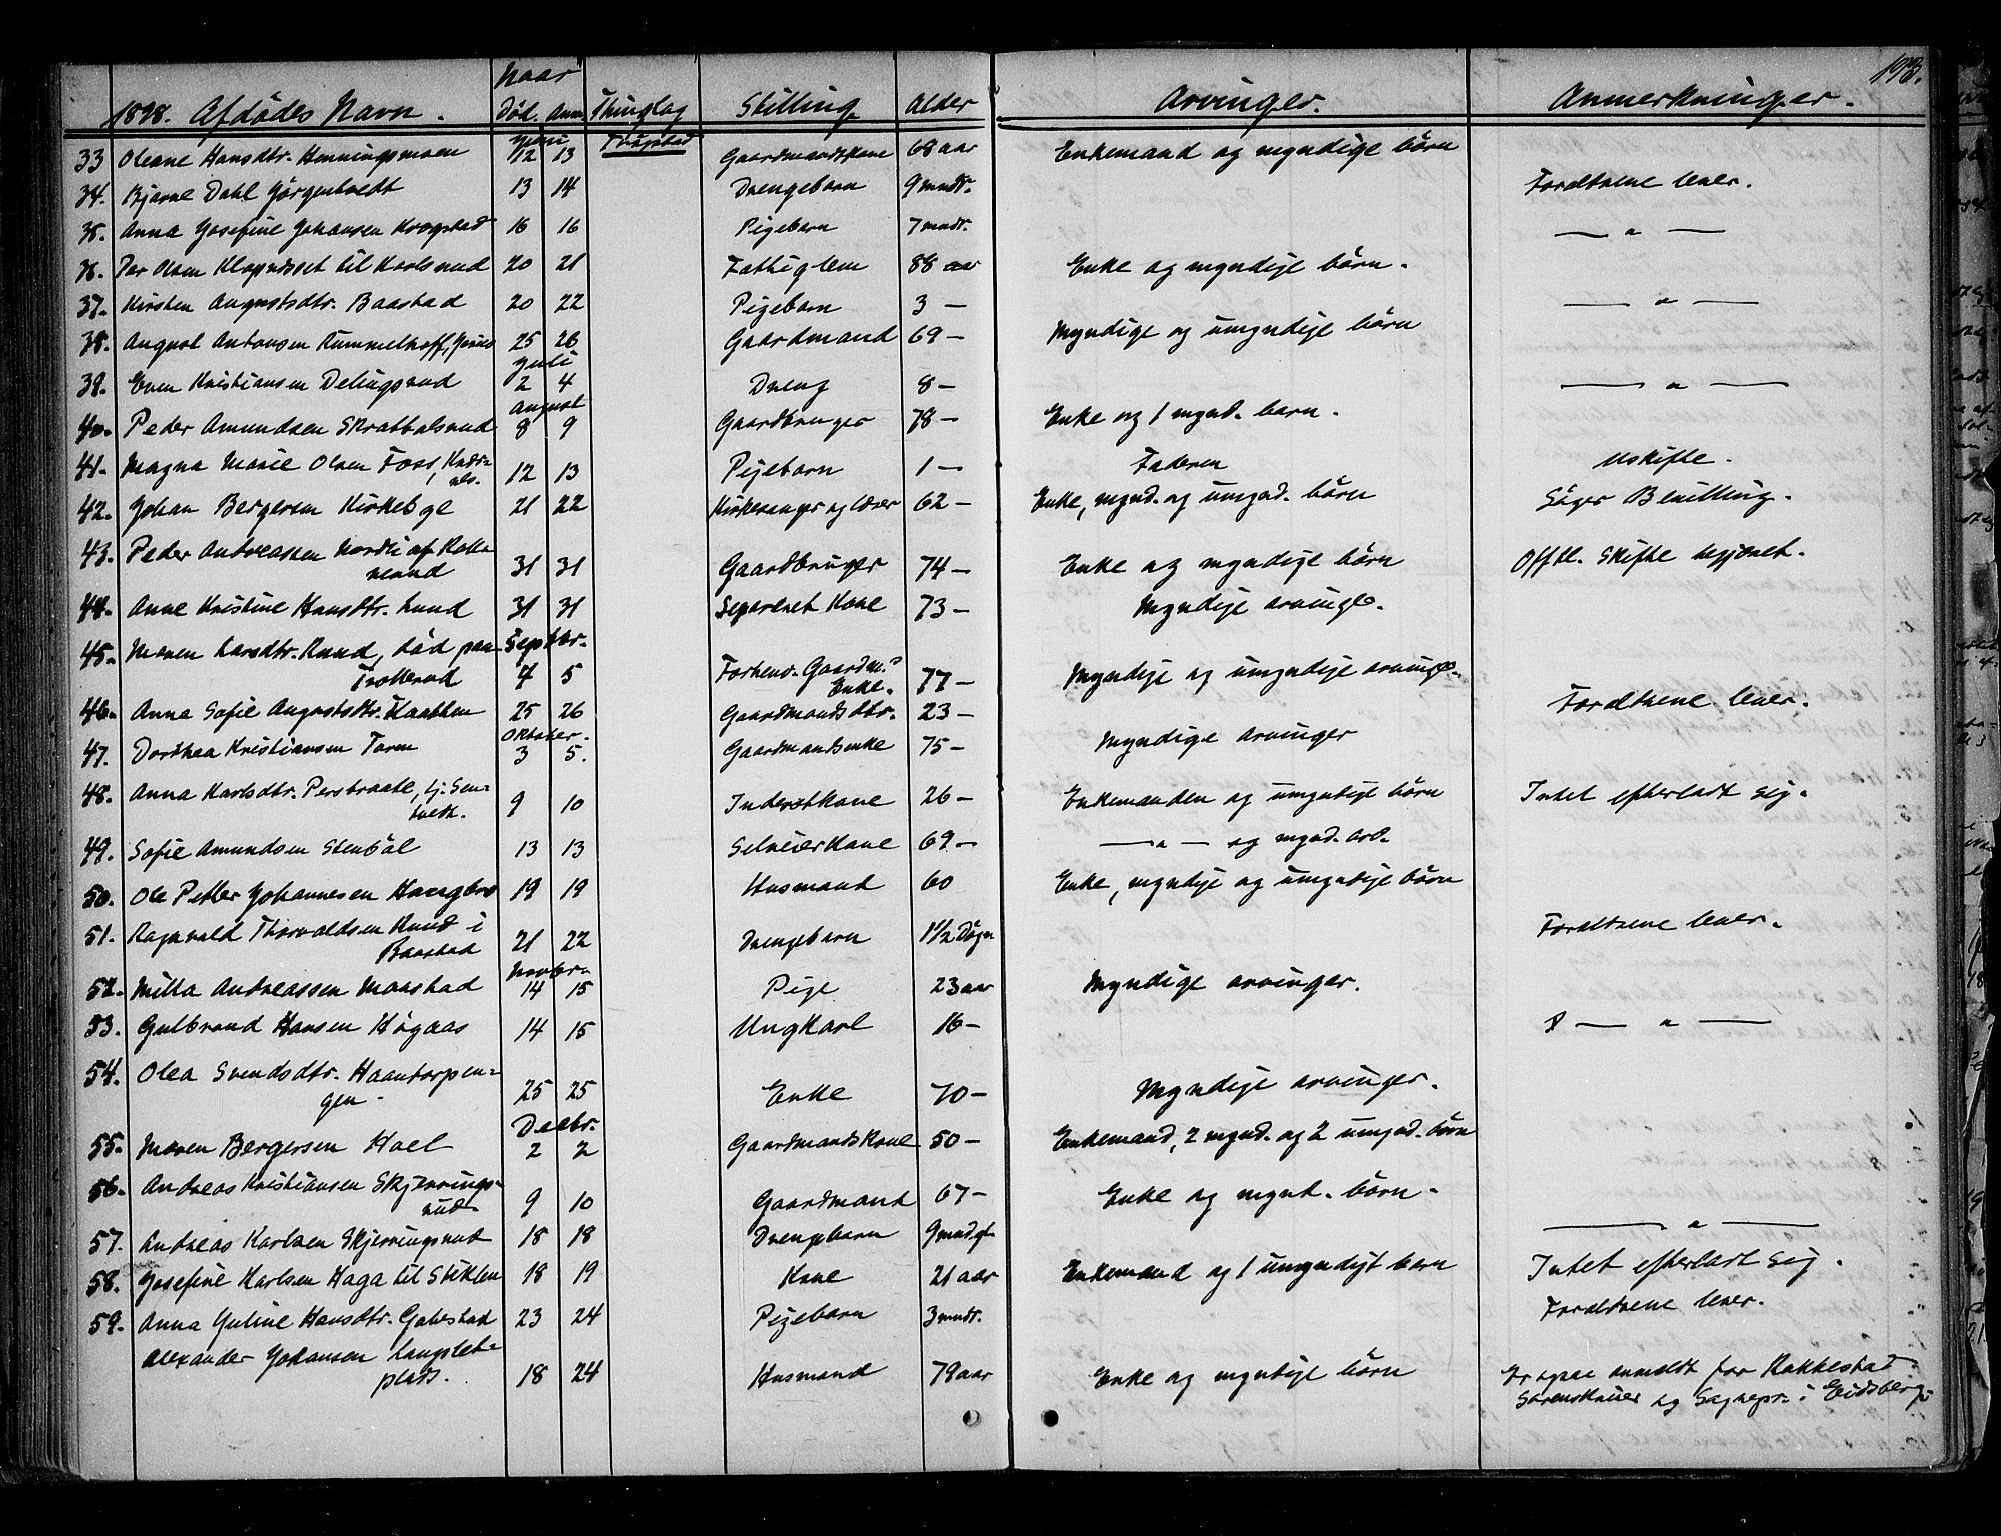 193.
Naar
1898. Afdödes Navn. Död. Anm. Thinglag Stilling Alder Arvinger. Anmerkninger.
Juni Thrøgstad
33 Oleane Hansdtr. Henningsmoen 12 13 Gaardmandskone 68 aar Enkemand og myndige börn
34. Bjarne Dahl Jörgentvedt 13 14 Drengebarn 9 mndr. Foreldrene lever.
35. Anna Josefine Johansen Krogstad 16 16 Pigebarn 7 mndr. — " —
36. Per Olsen til Karlsrud 20 21 Fattiglem 88 aar Enke og myndige börn.
37. Kirsten Augustsdtr. Baastad 20 22 Pigebarn 3 — — " —
38. August Antonsen Rummelhoff, 25 26 Gaardmand 69 — Myndige og umyndige börn
Juli
39. Even Kristiansen Delingsrud 2 4 Dreng 8 — — " —
August
40. Peder Amundsen Skrabbalsrud 8 9 Gaardbruger 78 — Enke og 1 mynd. barn.
41. Magna Marie Olsen Foss, 12 13 Pigebarn 1 — Faderen Uskifte.
42. Johan Bergersen Kirkebye 21 22 Kirkesanger og lærer 62 — Enke, mynd. og umynd. börn Söger Bevilling.
43. Peder Andreassen Nordli af
31 31 Gaardbruger 74 — Enke og myndige börn Offtl. Skifte begjæret.
44. Anne Kristine Hansdtr. Lund 31 31 Separeret Kone 73 — Myndige arvinge.
45. Maren Larsdtr. Ruud, död paa Septbr.
Trollerud 4 5 Forhenv. Gaardm. Enke. 77 — Myndige og umyndige arvinge.
46. Anna Sofie Augustsdtr. Kaatten 25 26 Gaardmandsdtr. 23 — Foreldrene lever.
Oktober.
47. Dorthea Kristiansen Torm 3 5. Gaardmandsenke 75 — Myndige arvinger
48. Anna Karlsdtr. Persbraate,
9 10 Inderstkone 26 — Enkemanden og umyndige börn Intet efterladt sig.
49. Sofie Amundsen Stenböl 13 13 Selveierkone 69 — — " — og mynd. arv.
50. Ole Petter Johannesen Haugbro 19 19 Husmand 60 Enke, myndige og umyndige börn
51. Ragnvald Thorvaldsen Ruud i
Baastad 21 22 Drengebarn 1 1/2 Dögn Foreldrene lever.
Novbr.
52. Milla Andreassen Maastad 14 15 Pige 23 aar Myndige arvinger.
53. Gulbrand Hansen Högaas 14 15 Ungkarl 16 — — " —
54. Olea Svendsdtr. Haantorpen-
gen. 25 25 Enke 70 — Myndige arvinger.
Decbr.
55. Maren Bergersen Hoel 2 2 Gaardmandskone 50 — Enkemand, 2 mynd. og 2 umynd. börn
56. Andreas Kristiansen Skjerrings-
rud 9 10 Gaardmand 67 — Enke og mynd. börn.
57. Andreas Karlsen Skjerringsrud 18 18 Drengebarn 9 — " —
58. Josefine Karlsen Haga til Stiklen 18 19 Kone 21 aar Enkemand og 1 umyndigt barn Intet efterladt sig.
59. Anna Juline Hansdtr. Gabestad 23 24 Pigebarn 3 mndr. Foreldrene lever.
Alexander Johansen Langslet-
plads. 18 24 Husmand 79 aar Enke og myndige börn Er ogsaa anmeldt for Rakkestad
Sorenskriver og Sognepr. i Eidsberg.